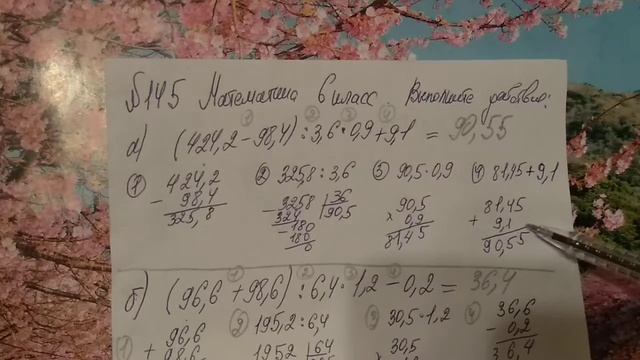 №145 Математика 6 класс Выполните действия:
① ② ③ ④
а) (424,2-98,4):3,6·0,9+9,1 = 90,55
① 424,2 ② 325,8:3,6 ③ 90,5·0,9 ④ 81,45+9,1
- 98,4
325,8
- 3258 | 36
324 | 90,5
- 180
180
0
90,5
× 0,9
81,45
81,45
+ 9,1
90,55
① ② ③ ④
б) (96,6 + 98,6) : 6,4 · 1,2 - 0,2 = 36,4
① 96,6 ② 195,2:6,4 ③ 30,5·1,2 ④ 36,6
+ 98,6
1952 | 64
30,5
- 0,2
36,4